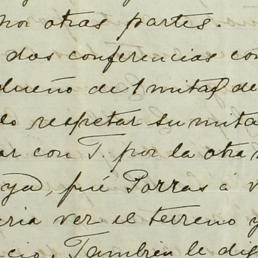 por otras partes.
dos conferencias con
dueño de 1 mitad de
respetar su mita
ar con T. por la otra
ya, fué Porras á v
ria ver el terreno y
cio. Tambien le di